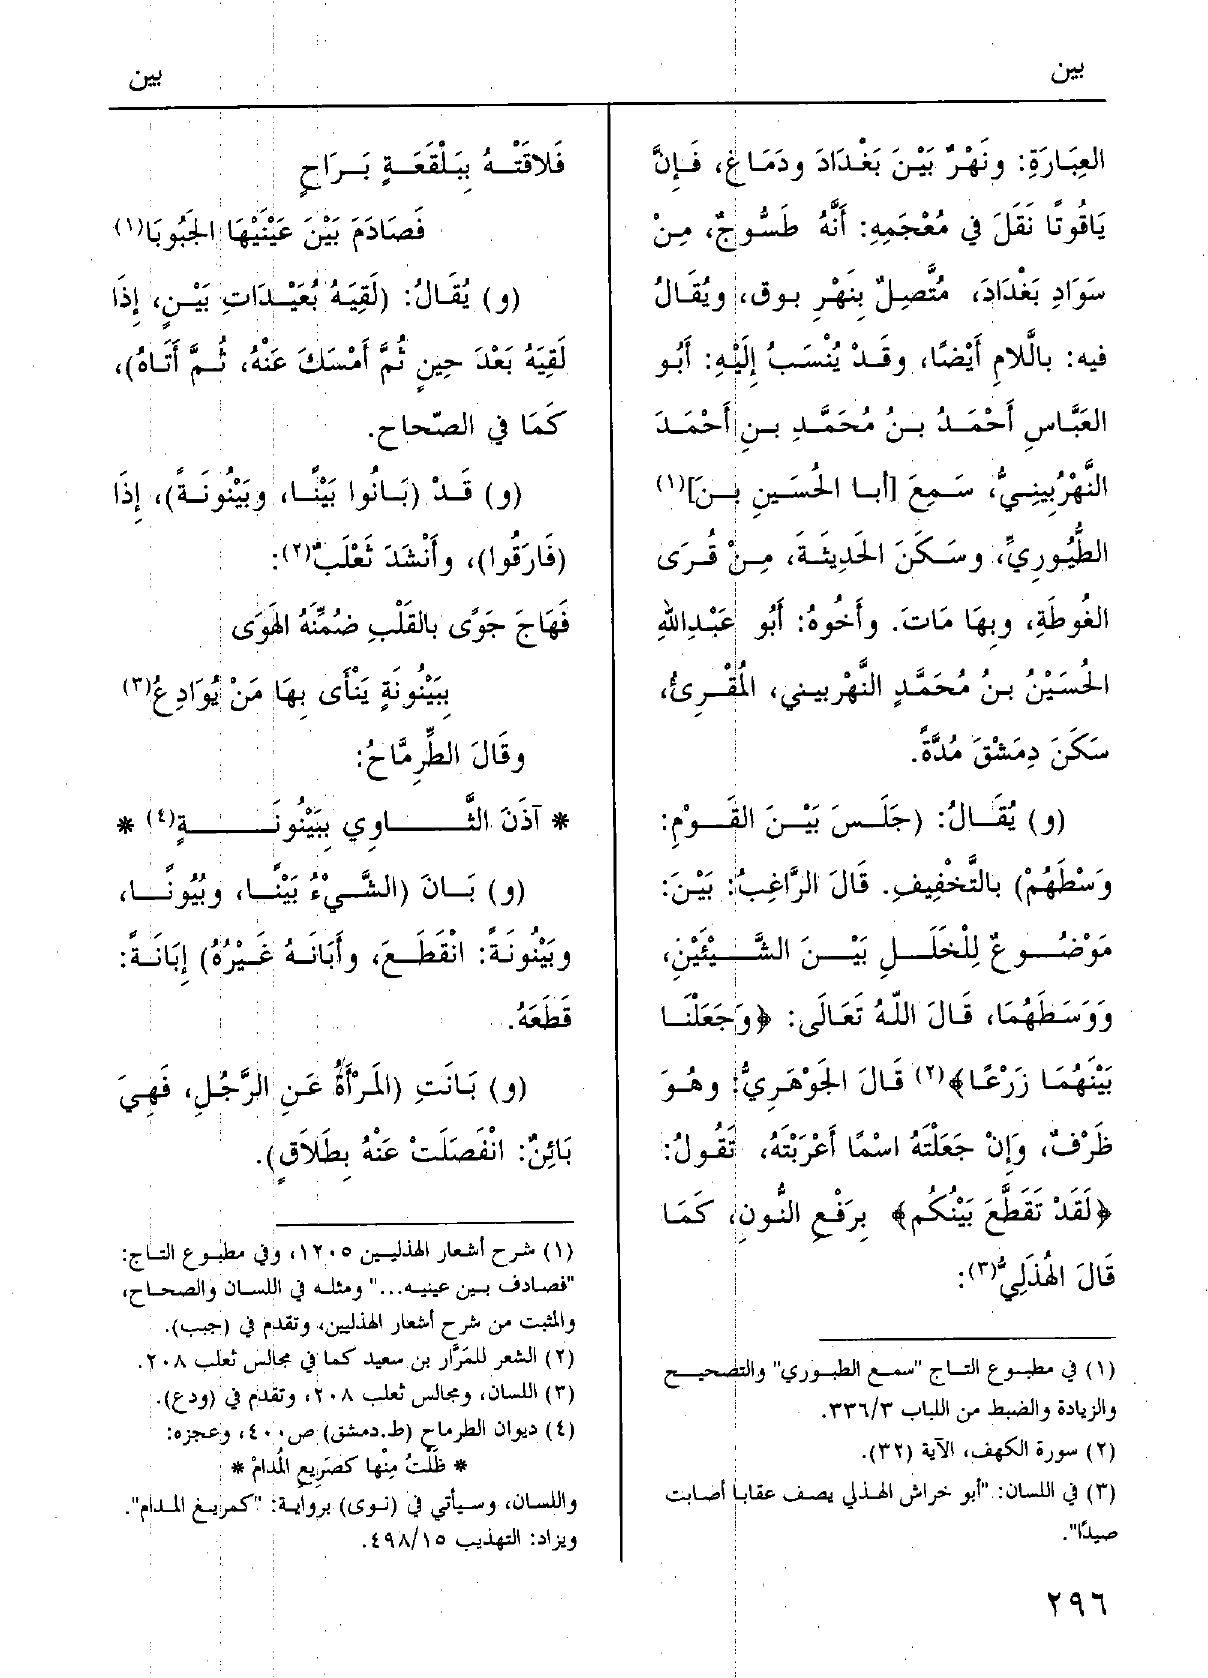 بين
بين
العِبَارَةِ: ونَهْرٌ بَيْنَ بَغْدَادَ ودَمَاغ، فَإِنَّ
يَاقُوتًا نَقَلَ في مُعْجَمِهِ: أَنَّهُ طَسُّوجٌ، مِنْ
سَوَادِ بَغْدَادَ، مُتَّصِلٌ بِنَهْرِ بوق، ويُقَالُ
فيه: بالَّلامِ أَيْضًا، وقَدْ يُنْسَبُ إِلَيْهِ: أَبُو
العَبَّاسِ أَحْمَدُ بنُ مُحَمَّدِ بنِ أَحْمَدَ
النَّهْرُبِينِيُّ، سَمِعَ [أبا الحُسَينِ بنَ](١)
الطُّيُورِيِّ، وسَكَنَ الحَدِيثَةَ، مِنْ قُرَى
الغُوطَةِ، وبِهَا مَاتَ. وأَخُوهُ: أَبُو عَبْدِاللهِ
الحُسَيْنُ بنُ مُحَمَّدٍ النَّهْرِبيني، المُقْرِئُ،
سَكَنَ دِمَشْقَ مُدَّةً.
(و) يُقَالُ: (جَلَسَ بَيْنَ القَوْمِ:
وَسْطَهُمْ) بالتَّخْفِيفِ. قَالَ الرَّاغِبُ: بَيْنَ:
مَوْضُوعٌ لِلْخَلَلِ بَيْنَ الشَّيْئَيْنِ،
وَوَسَطَهُمَا، قَالَ اللهُ تَعَالَى: ﴿وَجَعَلْنَا
بَيْنَهُمَا زَرْعًا﴾(٢) قَالَ الجَوْهَرِيُّ: وهُوَ
ظَرْفٌ، وَإِنْ جَعَلْتَهُ اسْمًا أَعْرَبْتَهُ، تَقُولُ:
﴿لَقَدْ تَقَطَّعَ بَيْنُكُم﴾ بِرَفْعِ النُّونِ، كَمَا
قَالَ الهُذَلِيُّ(٣):
(١) في مطبوع التاج "سمع الطبوري" والتصحيح
والزيادة والضبط من اللباب ٣٣٦/٣.
(٢) سورة الكهف، الآية (٣٢).
(٣) في اللسان: "أبو خراش الهذلي يصف عقابا أصابت
صيدًا".
فَلاقَتْهُ بِبَلْقَعَةٍ بَرَاحٍ
فَصَادَمَ بَيْنَ عَيْنَيْهَا الجَبُوبَا(١)
(و) يُقَالُ: (لَقِيَهُ بُعَيْدَاتِ بَيْنٍ، إِذَا
لَقِيَهُ بَعْدَ حِينٍ ثُمَّ أَمْسَكَ عَنْهُ، ثُمَّ أَتَاهُ)،
كَمَا في الصّحاح.
(و) قَدْ (بَانُوا بَيْنًا، وبَيْنُونَةً)، إِذَا
(فَارَقُوا)، وأَنْشَدَ ثَعْلَبٌ(٢):
فَهَاجَ جَوًى بالقَلْبِ ضُمِّنَهُ الهَوَى
بِبَيْنُونَةٍ يَنْأَى بِهَا مَنْ يُوَادِعُ(٣)
وقَالَ الطِّرِمَّاحُ:
* آذَنَ الثَّاوِي بِبَيْنُونَةٍ(٤) *
(و) بَانَ (الشَّيْءُ بَيْنًا، وبُيُونًا،
وبَيْنُونَةً: انْقَطَعَ، وأَبَانَهُ غَيْرُهُ) إِبَانَةً:
قَطَعَهُ.
(و) بَانَتِ (المَرْأَةُ عَنِ الرَّجُلِ، فَهِيَ
بَائِنٌ: انْفَصَلَتْ عَنْهُ بِطَلَاقٍ).
(١) شرح أشعار الهذليين ١٢٠٥، وفي مطبوع التاج:
"فصادف بين عينيه..." ومثله في اللسان والصحاح،
والمثبت من شرح أشعار الهذليين، وتقدم في (جبب).
(٢) الشعر للمَرَّار بن سعيد كما في مجالس ثعلب ٢٠٨.
(٣) اللسان، ومجالس ثعلب ٢٠٨، وتقدم في (ودع).
(٤) ديوان الطرماح (ط.دمشق) ص٤٠٠، وعجزه:
* ظَلْتُ مِنْها كصَرِيعِ المُدامْ *
واللسان، وسيأتي في (نوى) برواية: "كمريغ المدام".
ويزاد: التهذيب ٤٩٨/١٥.
٢٩٦